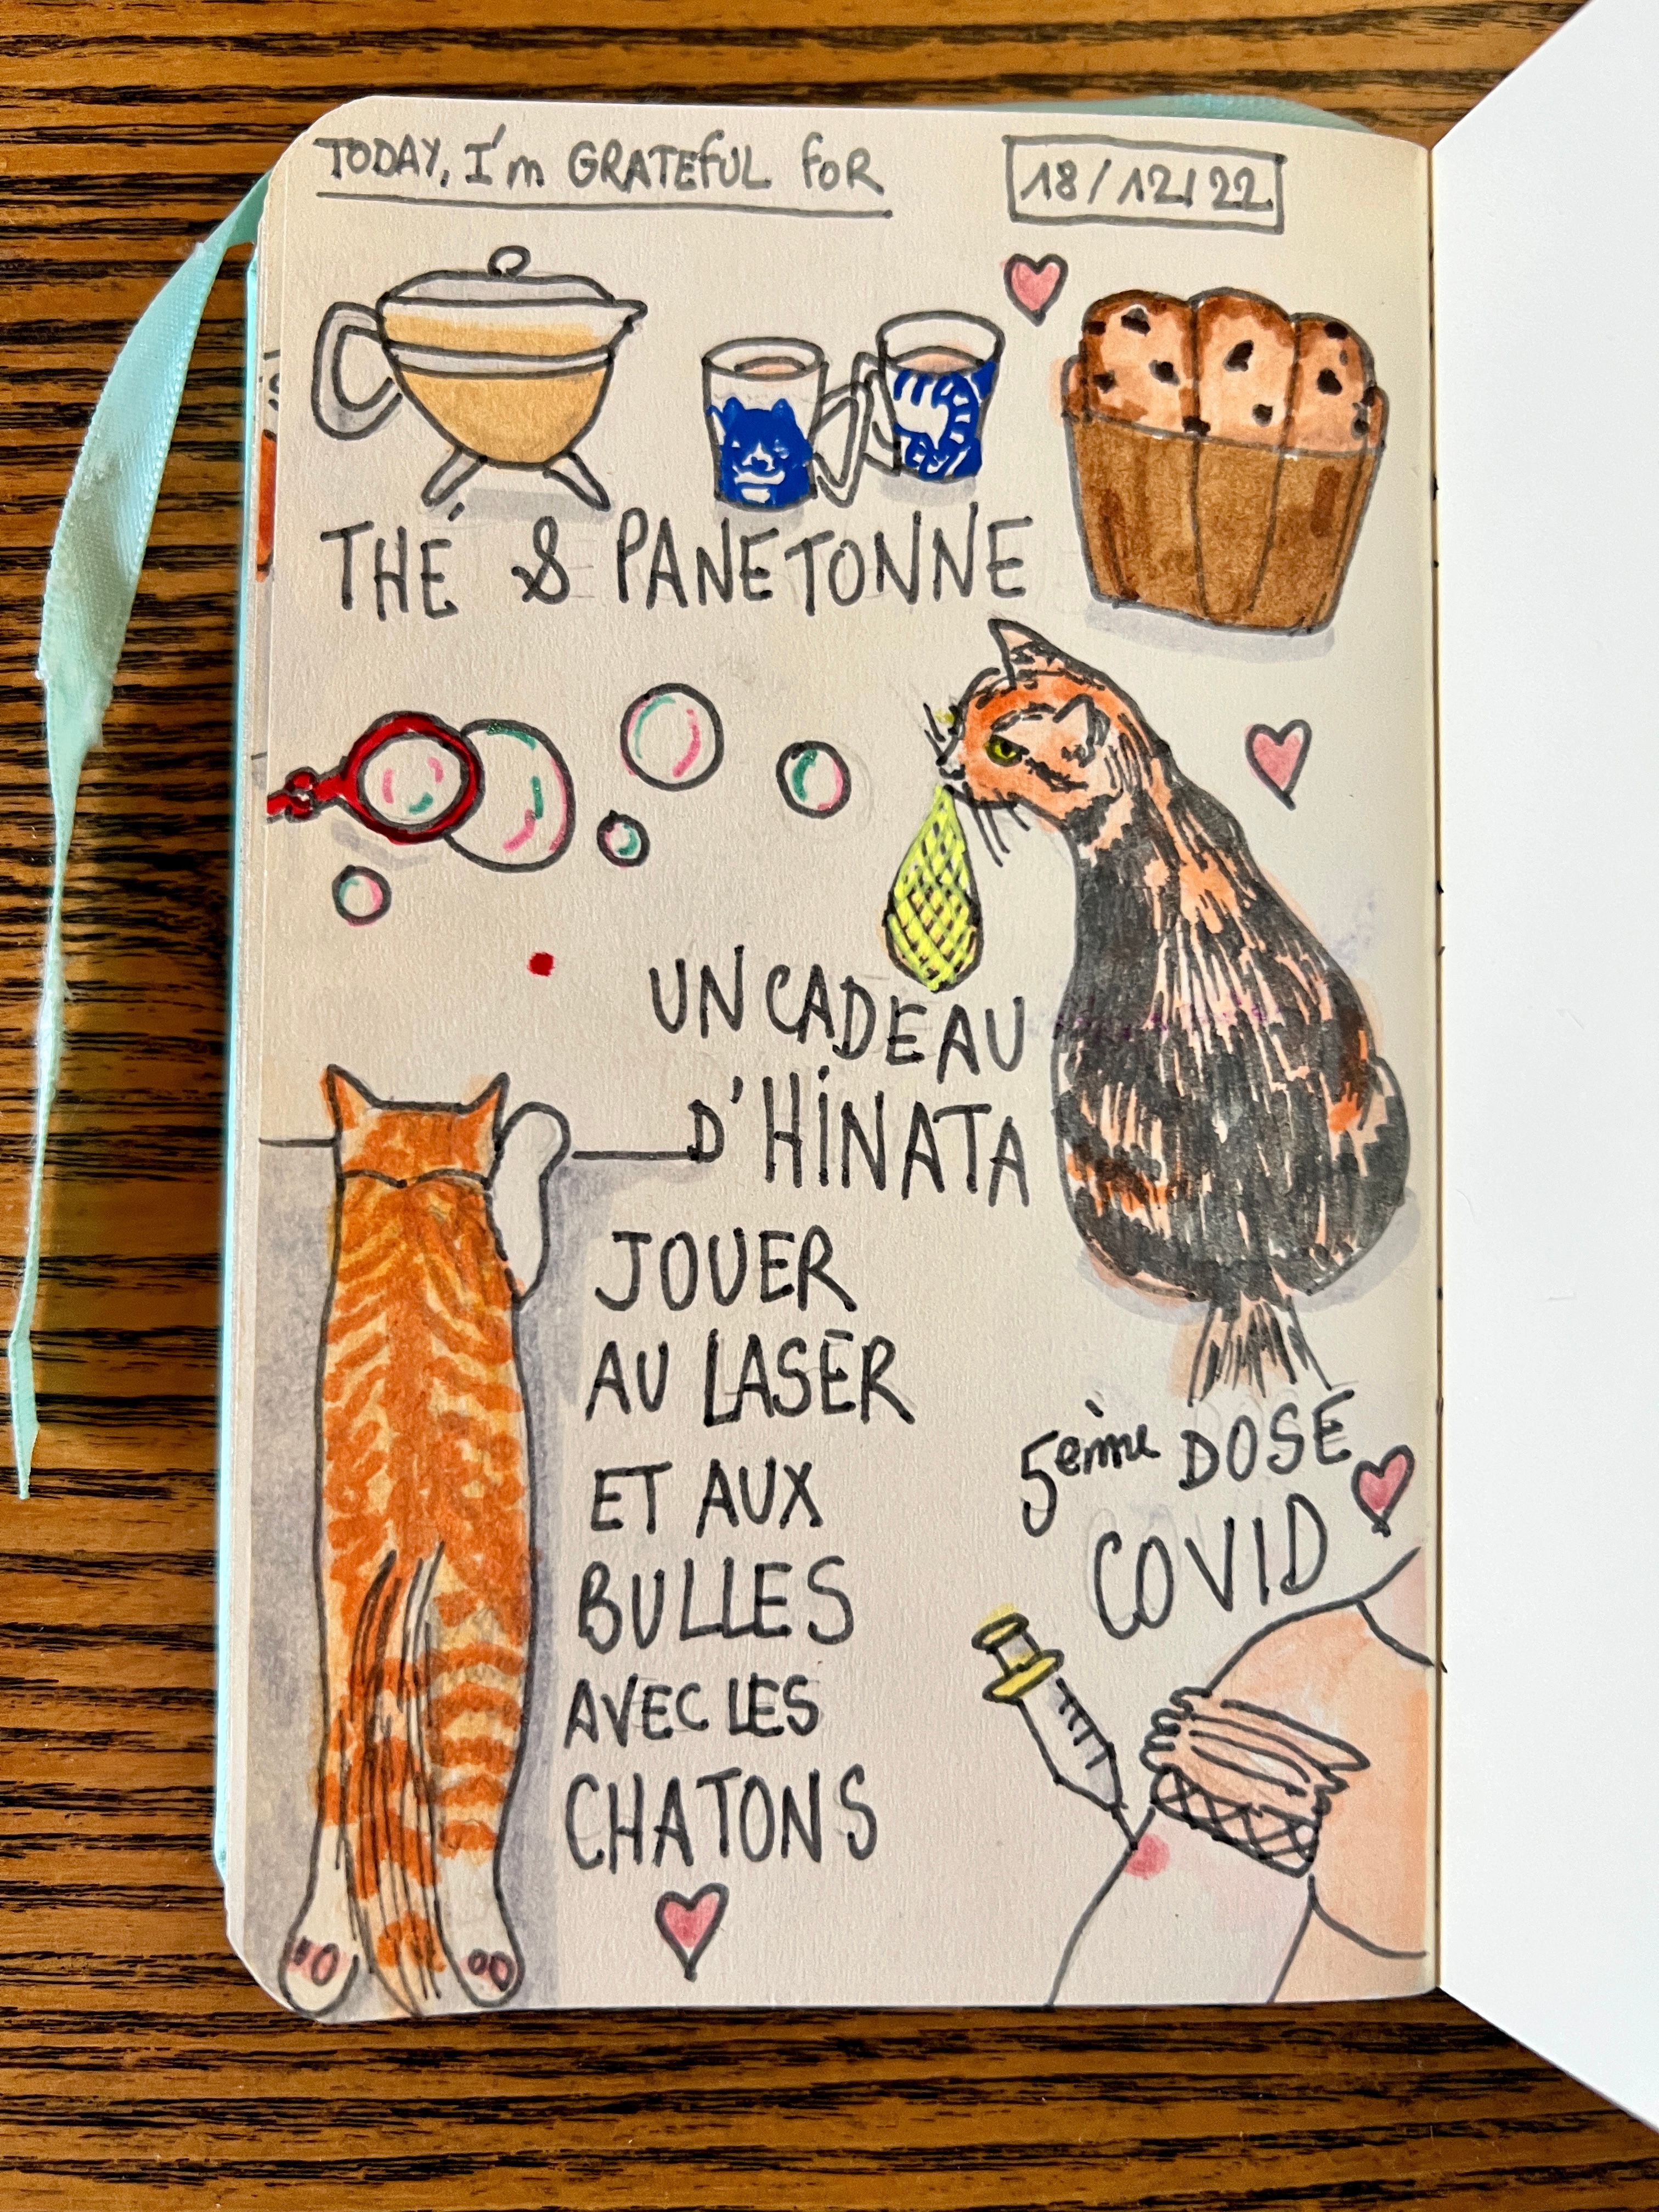 TODAY, I'm GRATEFUL FOR
18/12/22
THÉ & PANETONNE
UN CADEAU
D'HINATA
JOUER
AU LASER
ET AUX
BULLES
AVEC LES
CHATONS
5ème DOSE
COVID